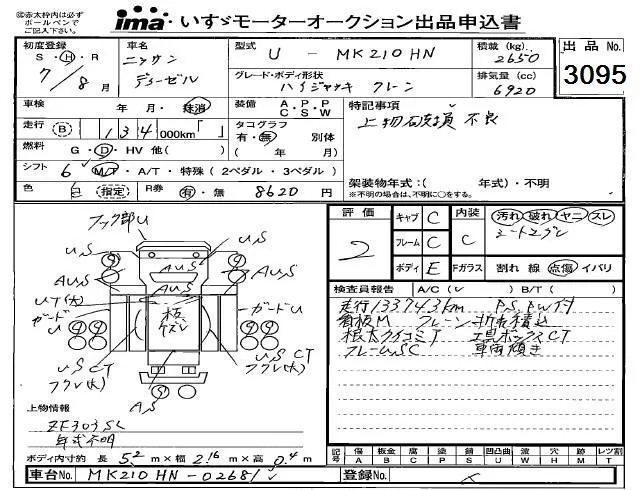 ◎赤太枠内は必ず
ボールペンで
ご記入下さい。
ima いすゞモーターオークション出品申込書
初度登録
S・H・R
7/8月
車名
ニッサン
ディーゼル
型式 U - MK210HN
積載 (kg)
2650
出品No.
3095
グレード・ボディ形状
ハイジャッキ クレーン
排気量 (cc)
6920
車検 年・月・抹消
装備 A・P・P
C・S・W
特記事項
上物破損 不良
走行 B 134,000km「 」
タコグラフ
有・無 別体
( 年 月)
燃料 G・D・HV 他( )
シフト 6 M/T・A/T・特殊(2ペダル・3ペダル)
架装物年式:( 年式)・不明
※不明の場合は、不明に○をする。
色 白 (指定) R券 有・無 8620 円
評価 2
キャブ C
フレーム C
ボディ E
内装 C
汚れ 破れ ヤニ スレ
シートコゲ
Fガラス 割れ 線 点傷 イバリ
フック部U
U,S
AUS
UT(大)
ガードU
板ズレ
USCT
フクレ(大)
AS
検査員報告 A/C( ) B/T( )
走行133743km P.S, P.W付
看板M クレーン折れ積込
根太クイコミT 工具ボックスCT
フレームUSC 車両傾き
上物情報
ZF303SL
年式不明
ボディ内寸約 長 5.2 m×幅 2.16 m×高 0.4 m
記号 傷 A 板金 B 腐 C 塗 P 錆 S 凹凸曲 U 波 W 穴 H 欠 M トメ T レツ割
車台No. MK210HN-02681
登録No.